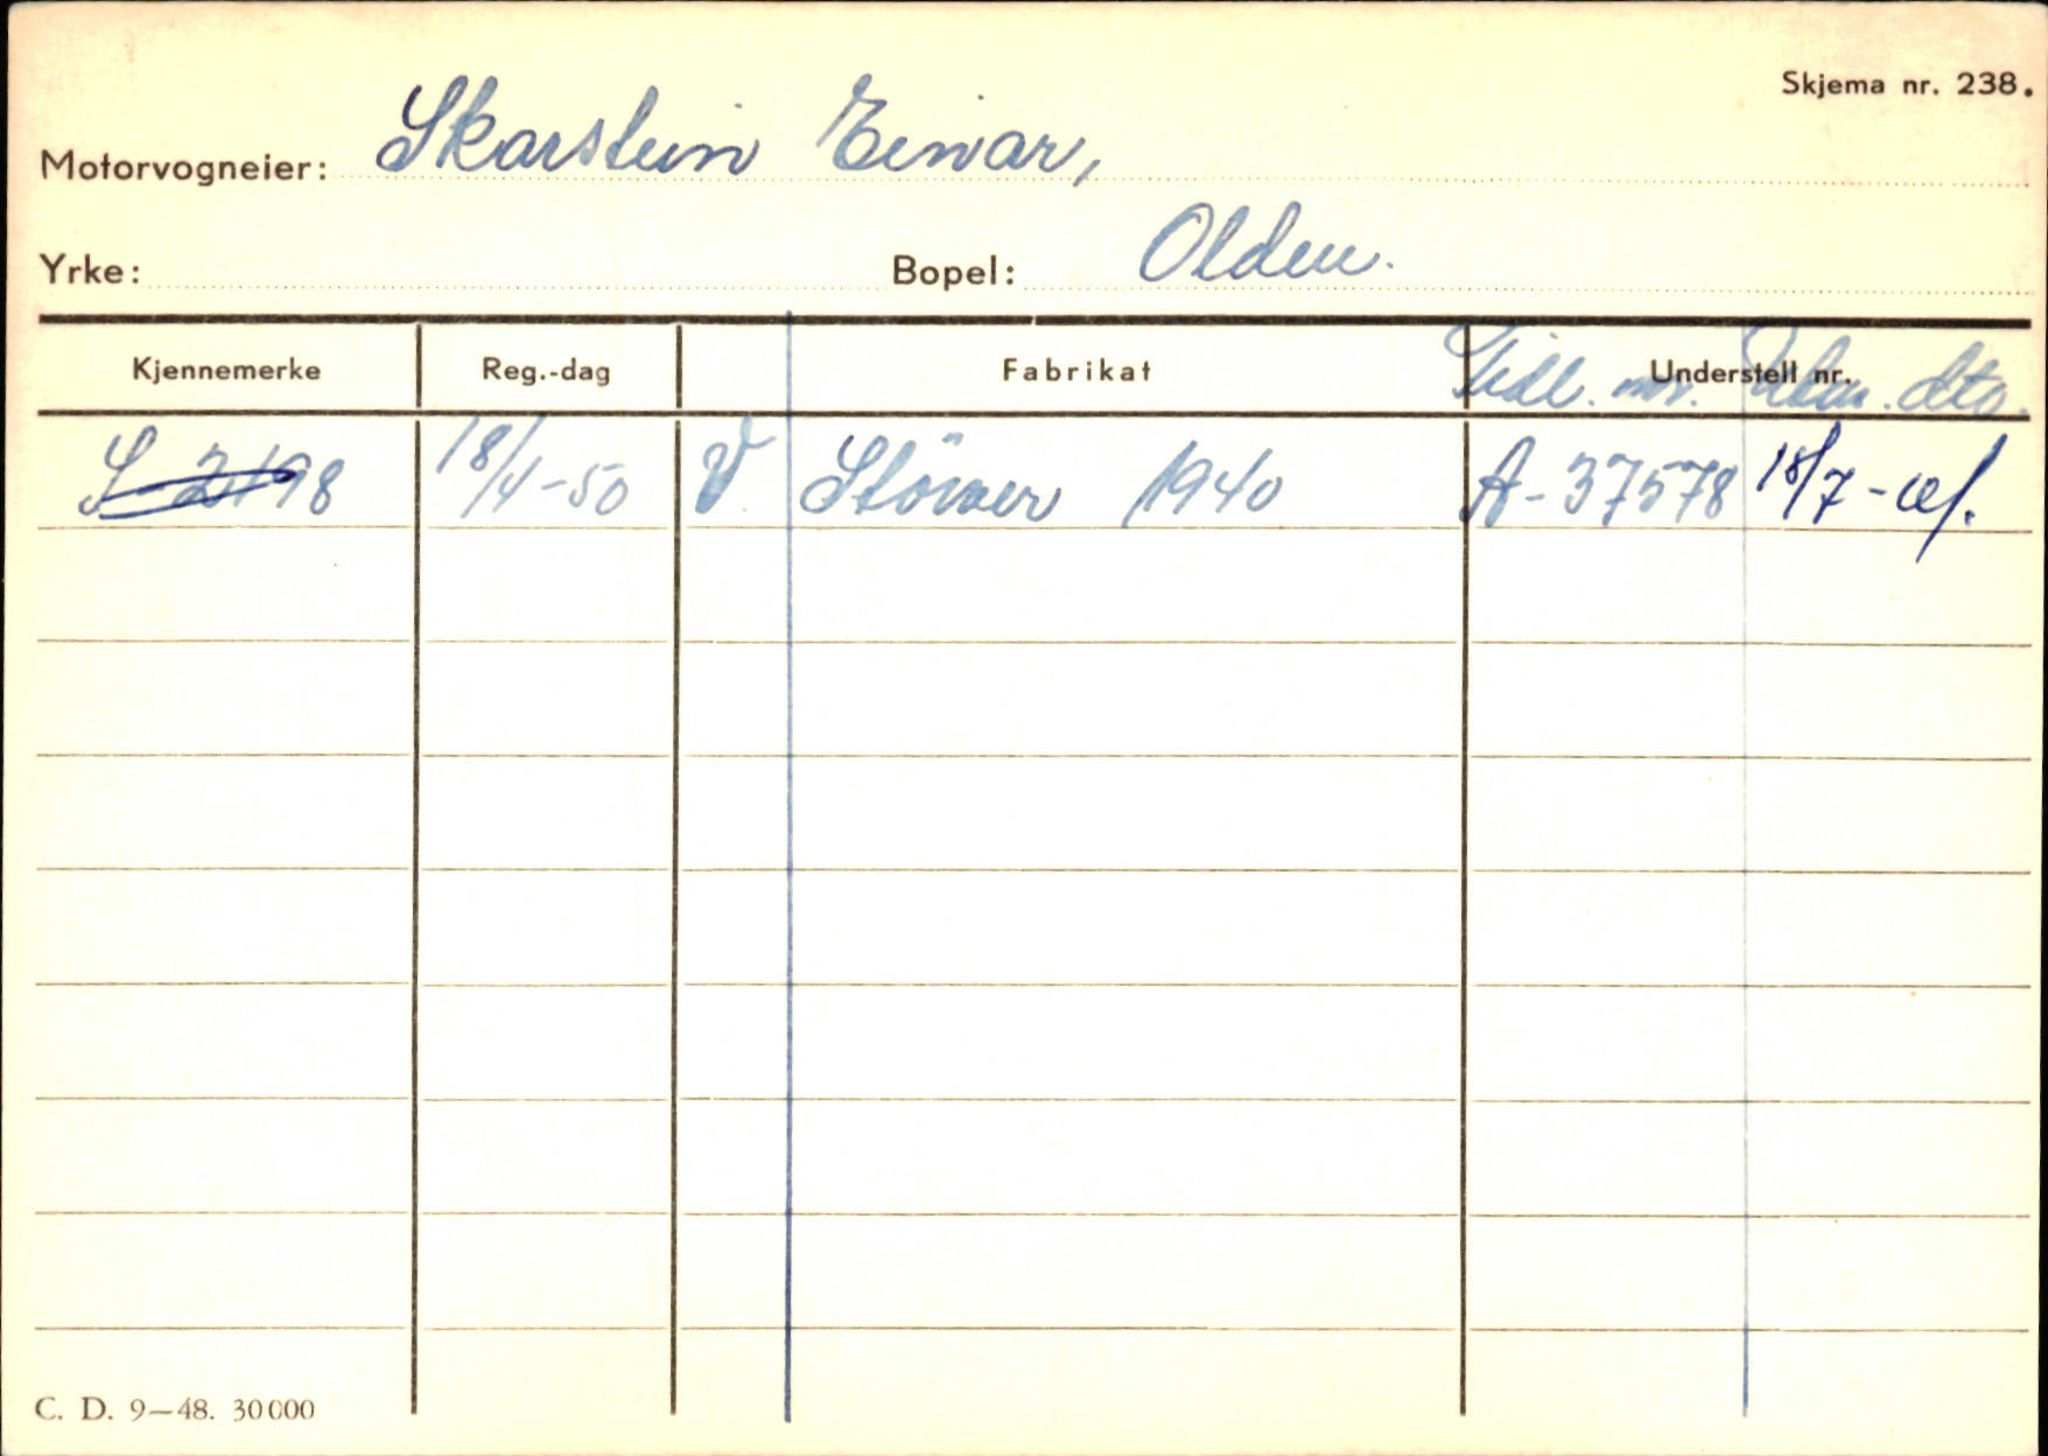 Skjema nr. 238.
Motorvogneier: Skarstein Einar,
Yrke: Bopel: Olden.
Kjennemerke Reg.-dag Fabrikat Understell nr. Tidl. mrk. dto.
S-2198 18/4-50 V Stöwer 1940 A-37578 18/7-
C. D. 9—48. 30000